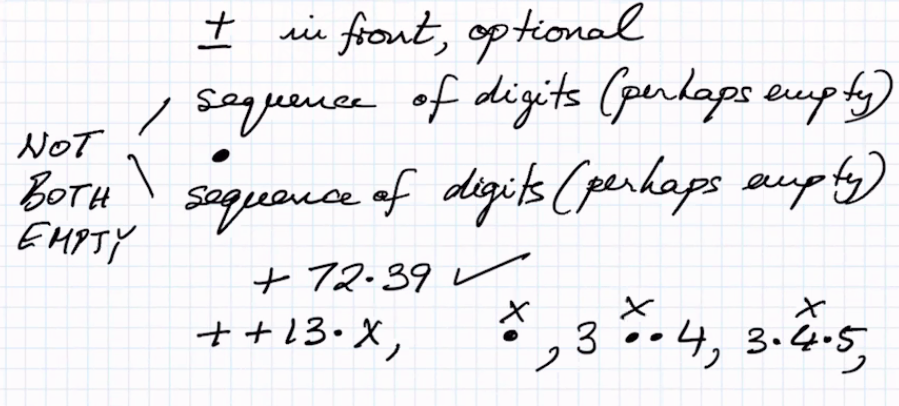 ± in front, optional
sequence of digits (perhaps empty)
NOT
•
BOTH
sequence of digits (perhaps empty)
EMPTY
+ 72.39 ✓
+ + 13. x, x •, 3 x •• 4, 3.4.5, x